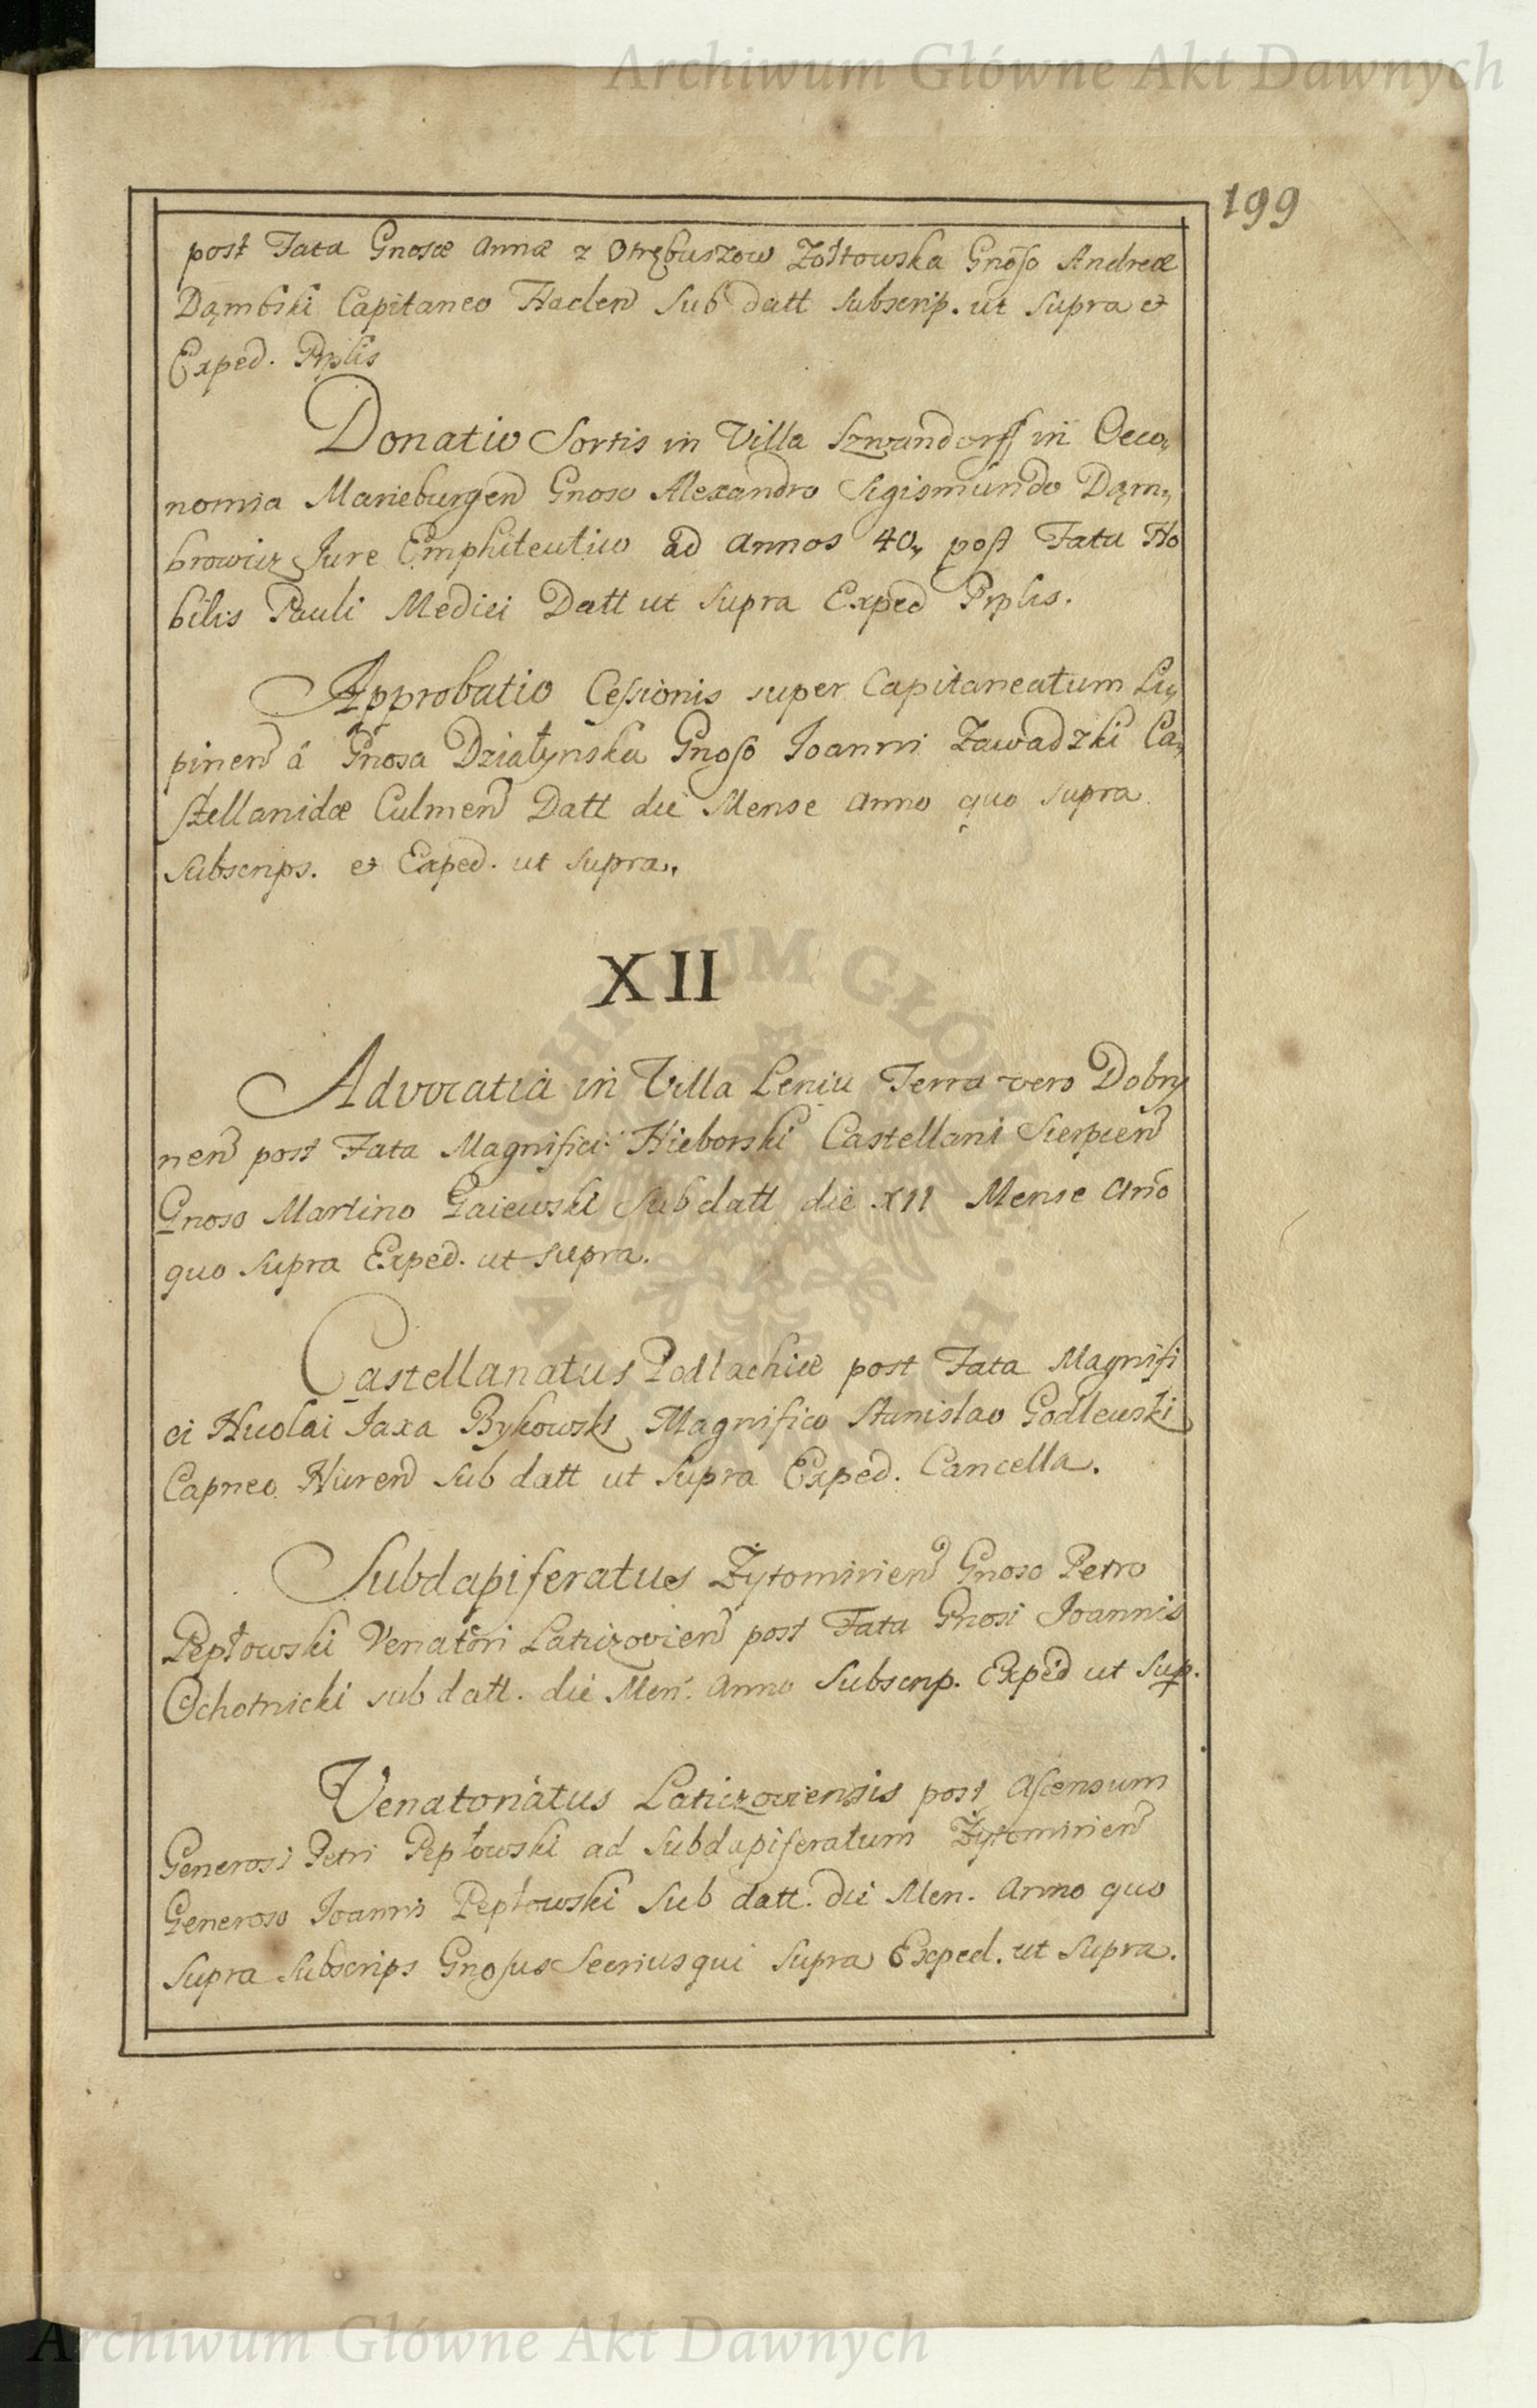 Archiwum Główne Akt Dawnych
199
post Fata Gnosæ Annæ z Otrębuszow Zołtowska Gnoso Andreæ
Dąmbski Capitaneo Haclen Sub datt subscrip. ut supra et
Exped. Prplis
Donatio Sortis in Villa Szwandorff in Oeco,
nomia Marieburgen Gnoso Alexandro Sigismundo Dąm,,
browicz Jure Emphiteutico ad Annos 40,, post Fata No
bilis Pauli Medici Datt ut Supra Exped Prplis.
Approbatio Cessionis super Capitaneatum Li,,
pinen á Gnosa Działynska Gnoso Joanni Zawadzki Ca,,
stellanidæ Culmen Datt die Mense Anno quo supra
Subscrips. et Exped. ut supra,
XII
ARCHIWUM GŁÓWNE AKT DAWNYCH
Advocatia in Villa Leniu Terra vero Dobry
nen post Fata Magnifici Nieborski Castellani Sierpcen
Gnoso Martino Gaiewski Sub datt die XII Mense Año
quo supra Exped. ut supra.
Castellanatus Podlachiæ post Fata Magnifi
ci Nicolai Jaxa Bykowski Magnifico Stanislao Godlewski
Capneo Nuren sub datt ut supra Exped. Cancella.
Subdapiferatus Żytomirien Gnoso Petro
Pepłowski Venatori Laticzovien post Fata Gnosi Joannis
Ochotnicki sub datt. die Men. Anno Subscrip. Exped ut Sup.
Venatoriatus Laticzoviensis post Ascensum
Generosi Petri Pepłowski ad Subdapiferatum Żytomirien
Generoso Joannis Pepłowski Sub datt. die Men. Anno quo
Supra Subscrips Gnosus Secrius qui supra Exped. ut supra.
Archiwum Główne Akt Dawnych